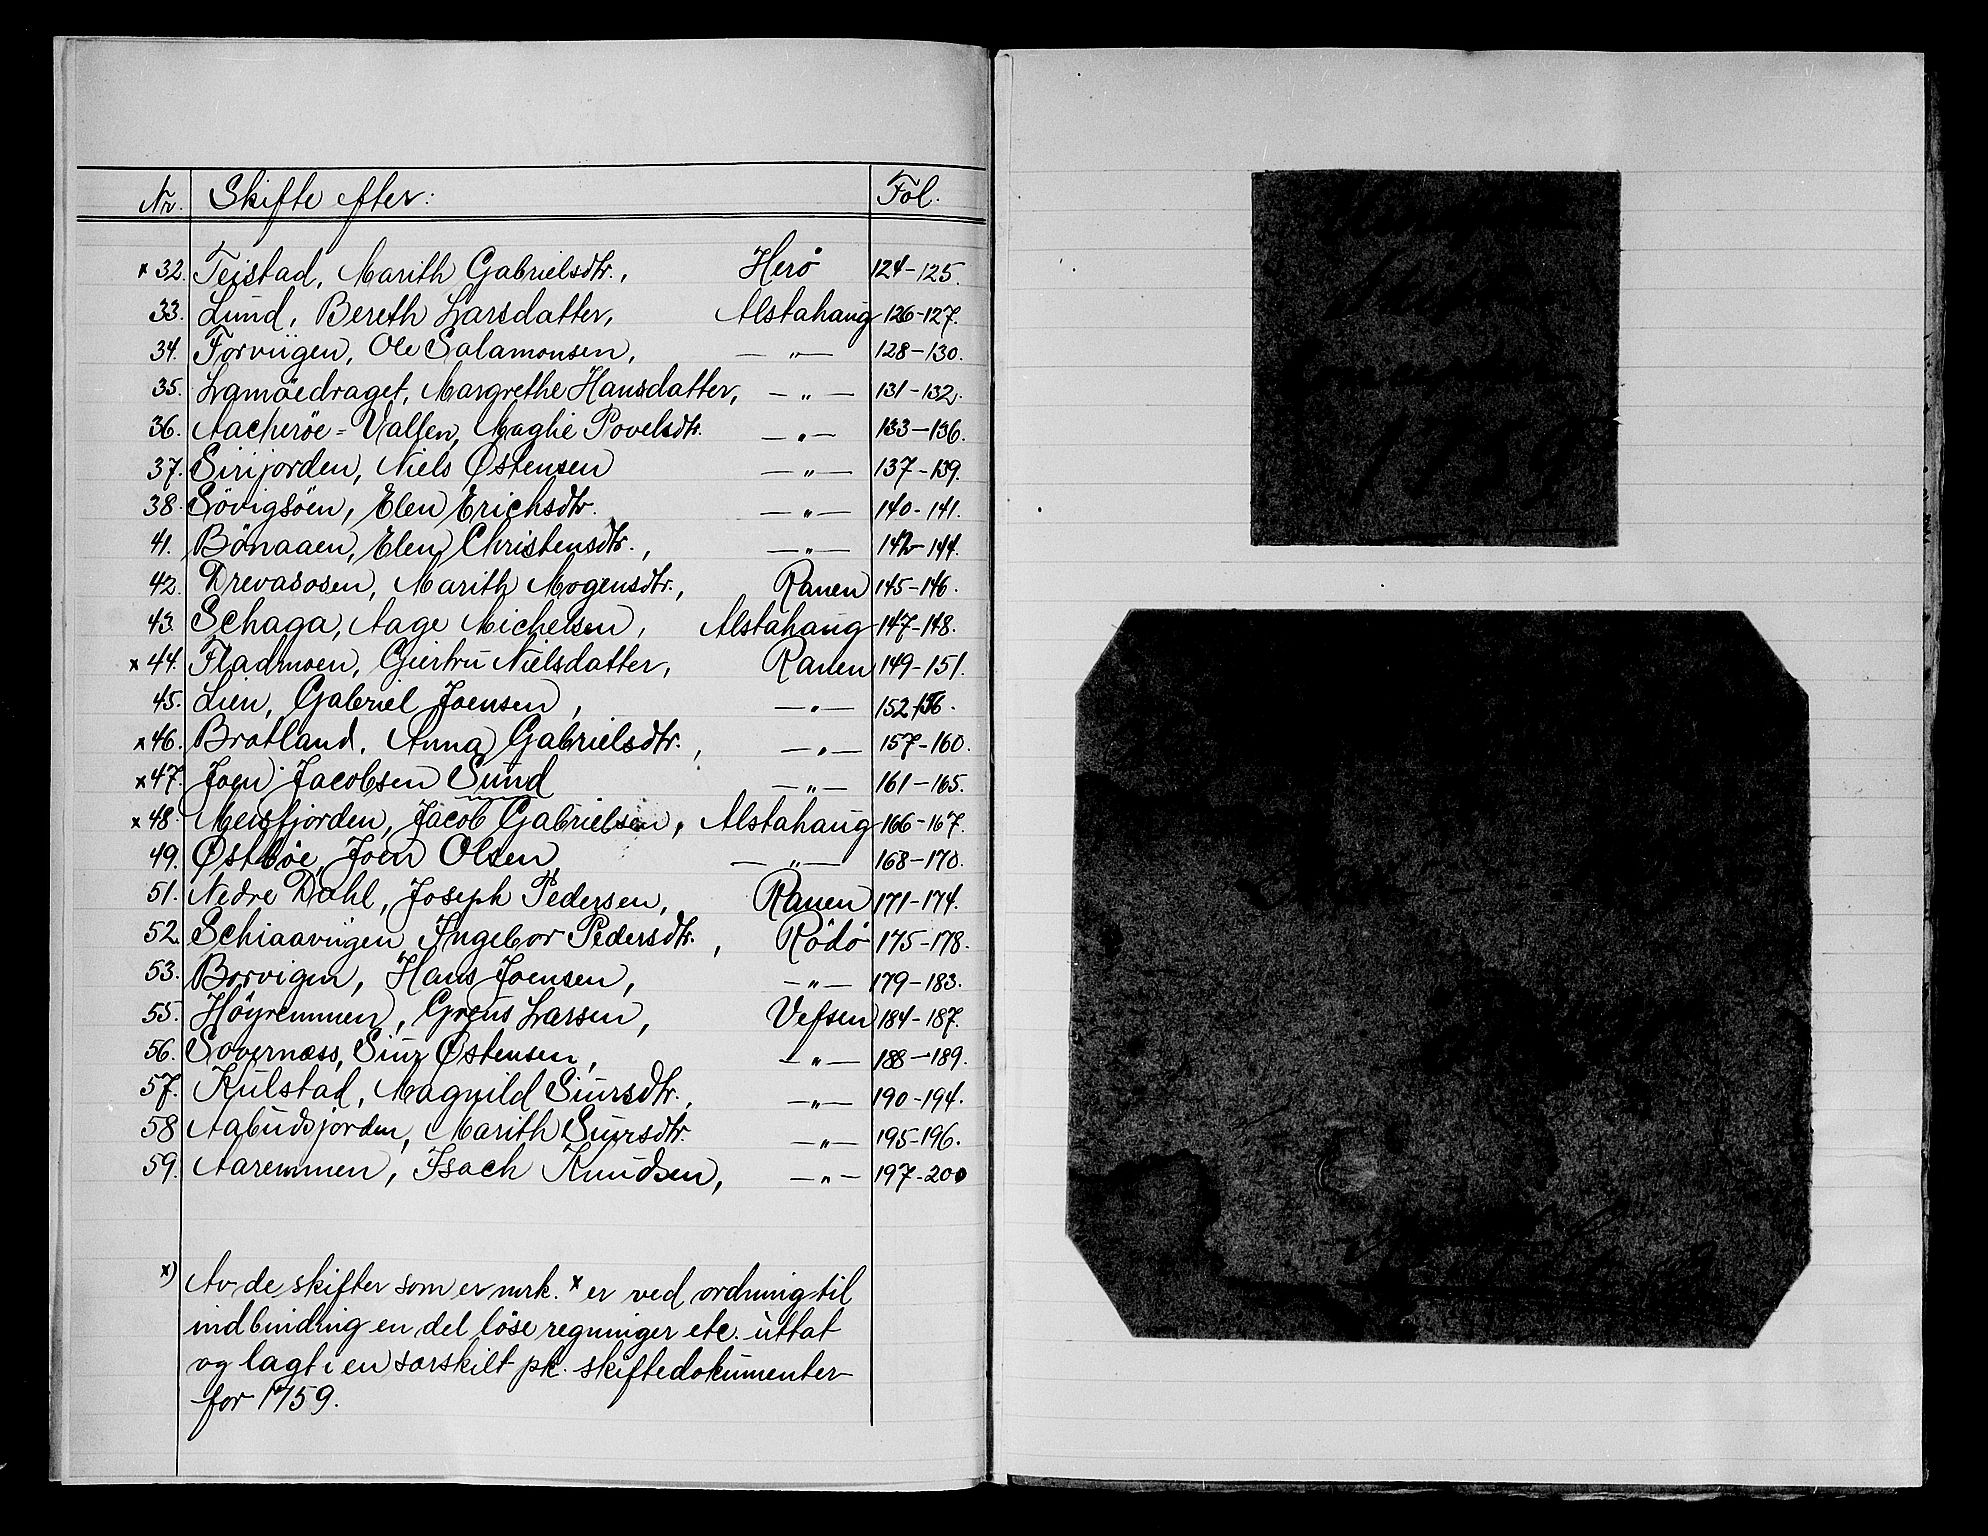 Nr. Skifte efter: Fol.
x 32. Teistad, Marith Gabrielsdtr., Herö 124-125.
33. Lund, Bereth Larsdatter, Alstahaug 126-127.
34. Forviigen, Ole Salamonsen, — " — 128-130.
35. Lamöedraget, Margrethe Hansdatter, — " — 131-132.
36. Aacheröe-Valfen, Maglie Povelsdtr. — " — 133-136.
37. Sirijorden, Niels Østensen — " — 137-139.
38. Sövigsöen, Elen Erichsdtr. — " — 140-141.
41. Bönaaen, Elen Christensdtr., — " — 142-144.
42. Drevasosen, Marith Mogensdtr., Ranen 145-146.
43. Schaga, Aage Michelsen, Alstahaug 147-148.
x 44. Fladmoen, Giertru Nielsdatter, Ranen 149-151.
45. Lien, Gabriel Joensen, — " — 152-156.
x 46. Bratland, Anna Gabrielsdtr., — " — 157-160.
x 47. Joen Jacobsen Sund — " — 161-165.
x 48. Meisfjorden, Jacob Gabrielsen, Alstahaug 166-167.
49. Østböe, Joen Olsen — " — 168-170.
51. Nedre Dahl, Joseph Pedersen, Ranen 171-174.
52. Schiaaviigen, Ingebor Pedersdtr., Rödö 175-178.
53. Borvigen, Hans Joensen, — " — 179-183.
55. Höyremmen, Greus Larsen, Vefsen 184-187.
56. Sovernæss, Siur Østensen, — " — 188-189.
57. Kulstad, Magnild Siursdtr., — " — 190-194.
58. Aabudsjorden, Marith Siursdtr. — " — 195-196.
59. Aaremmen, Isach Knudsen, — " — 197-200
x) Av de skifter som er mrk. x er ved ordning til
indbinding en del löse regninger etc. uttat
og lagt i en særskilt pk. skiftedokumenter
for 1759.
1759